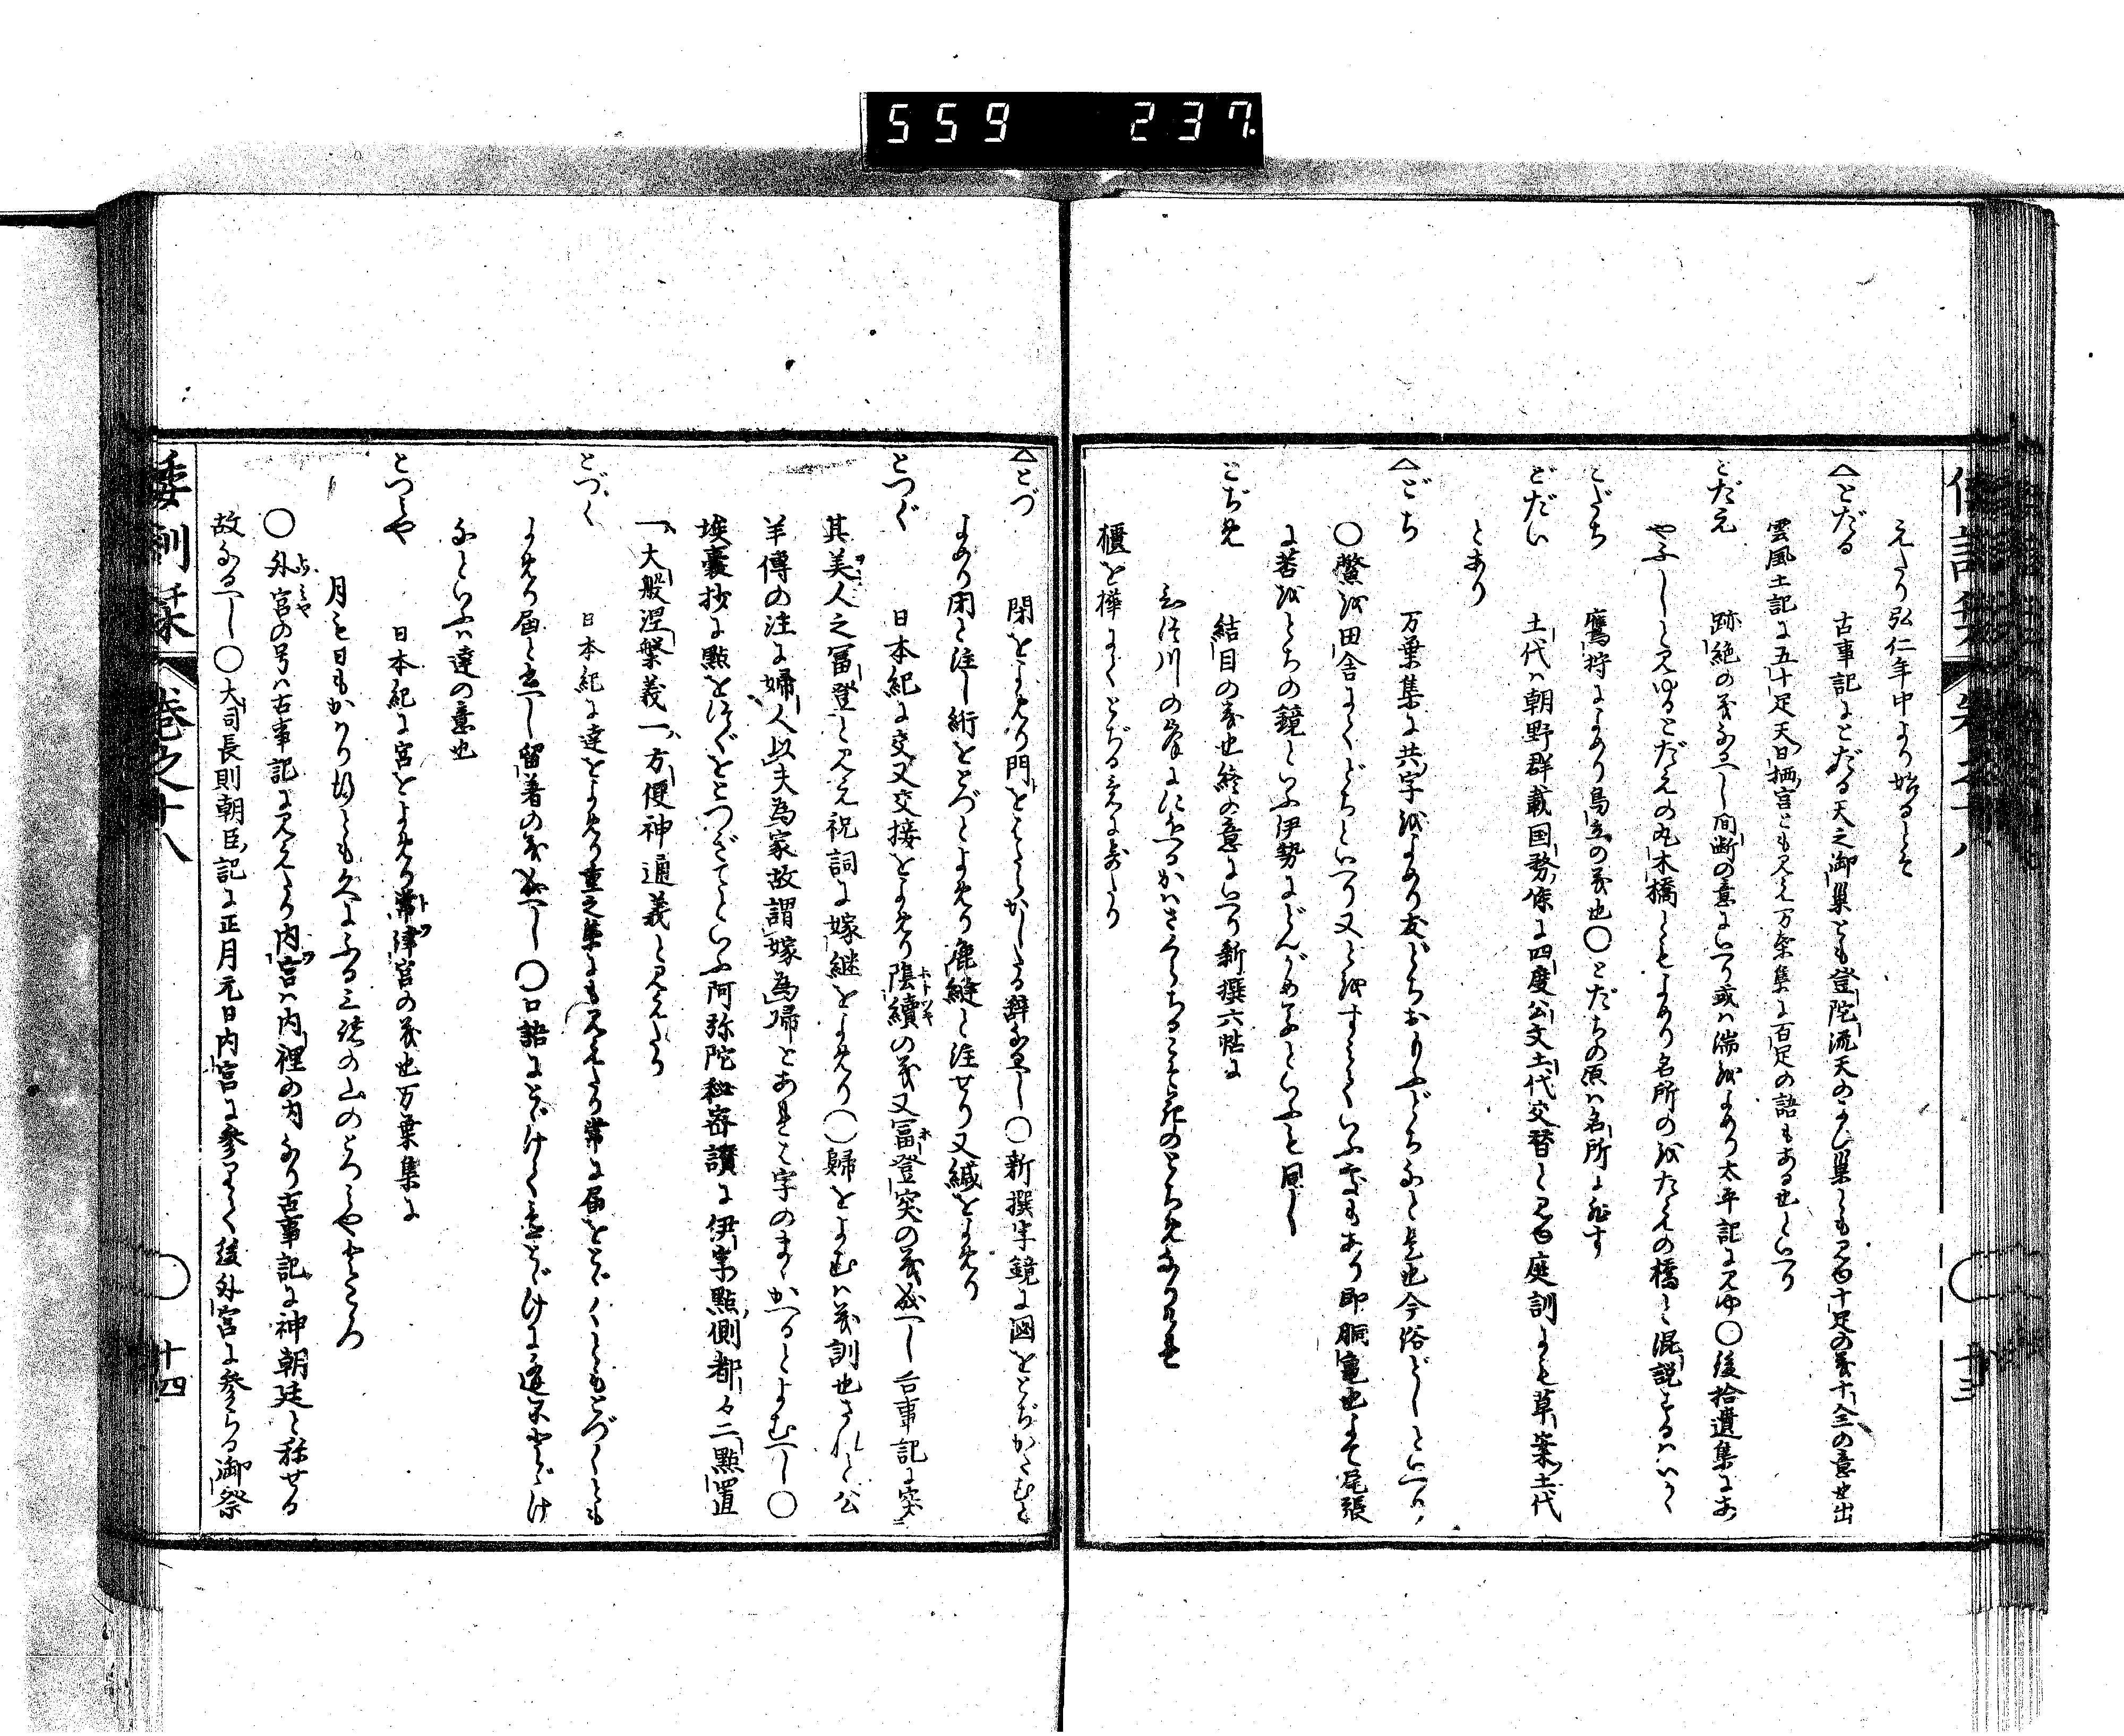 559 237
えたり弘仁年中より始るとそ
とだる 古事記にとだる天之御巣とも登陀流天のみ巣とも見ゆ十足の義十全の意也出
雲風土記に五十足天日栖宮とも見え万葉集に百足の語もある也といへり
とだえ 跡絶の義なるへし間断の意にいへり或は湍をよめり太平記に見ゆ〇後拾遺集にあ
やふしと見ゆるとだえの丸木橋ともよめり名所のをたえの橋と混説するはいかゝ
とだち 鷹狩によめり鳥立の義也〇とだちの原は名所に非す
どだい 土代は朝野群載国務條に四度公文土代交替と見ゆ庭訓にも草案土代
とあり
どち 万葉集に共字をよめり友どちおもふどちなと是也今俗どしといへり
〇鼈を田舎にてどちといへり又とをすとくいふ處もあり即胴亀也よて尾張
に若をとちの鏡といふ伊勢にどんがめなといふも同し
とぢめ 結目の義也終の意にいへり新撰六帖に
櫃を樺にてとぢる意によれり
とづ 閉をよめり門をはたらかしたる辞なるへし〇新撰字鏡に圀をとぢかくむと
よめり閇と注し絎をとづとよめり麁縫と注せり又緘をよめり
とつぐ 日本紀に交又交接をよめり陰續の義又冨登突の義成へし古事記に突
其美人之冨登と見え祝詞に嫁継をよめり〇歸をよむは義訓也されと公
羊傳の注に婦人以夫為家故謂嫁為歸とあれは字のまゝかへるとよむへし〇
埃嚢抄に點をはぐをとつざてといふ阿弥陀秘密讃に伊字點側都々二點置
一大般涅槃義一方便神通義と見えたり
とづく 日本紀に達をよめり重之集にも見えたり常に届をとゞくともとづくとも
よめり届と書へし留著の義成へし〇口語にとゞけて無とゞけに遅不とゞけ
なといふは達の意也
とつみや 日本紀に宮をよめり常津宮の義也万葉集に
月も日もかはり行とも久にふる三諸の山のとつみやところ
〇外宮の号は古事記に見えたり内宮は内裡の内なり古事記に神朝廷と称せる
故なるへし〇大司長則朝臣記に正月元日内宮に参りて後外宮に参らる御祭
倭訓栞 巻之十八 〇 十四